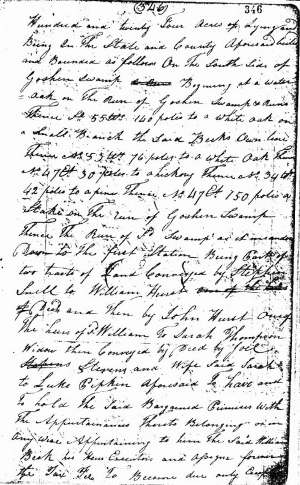 (346)
346
Hundred and twenty Four Acres of Lying and
Being In the State and County Aforesaid
and Bounded as follows On the South Side of
Goshen Swamp Begining at a water
Oak on The Run of Goshen Swamp & Runs
Thence So. 55 Wt. 160 poles to a white oak on
a Small Branch the Said Becks Own line
Thence No. 55 Wt. 76 poles to a White Oak Thence
No. 47 Et. 30 poles to a hickory Thence No. 34 Wt.
42 poles to a pine Thence No. 47 Et. 150 poles a
Stake on The run of Goshen Swamp
Thence The Run of Sd. Swamp as it meanders
Down to The first Station Being Part of
two tracts of Land Conveyed by Stephen
Snell to William Hurst
Died and Then by John Hurst One of
The heirs of Sd. William To Sarah Thompson
Widow then Conveyed by Deed by Joel
Stevens and Wife Said Sarah
to Luke Pipkin Aforesaid To have and
To hold The Said Bargained Premises With
The Appurtainances Thereto Belonging or in
Any Wise Appurtaining to him The Said William
Beck his Heirs Executors and Assigns forever
The Tax Fee To Become due only Except